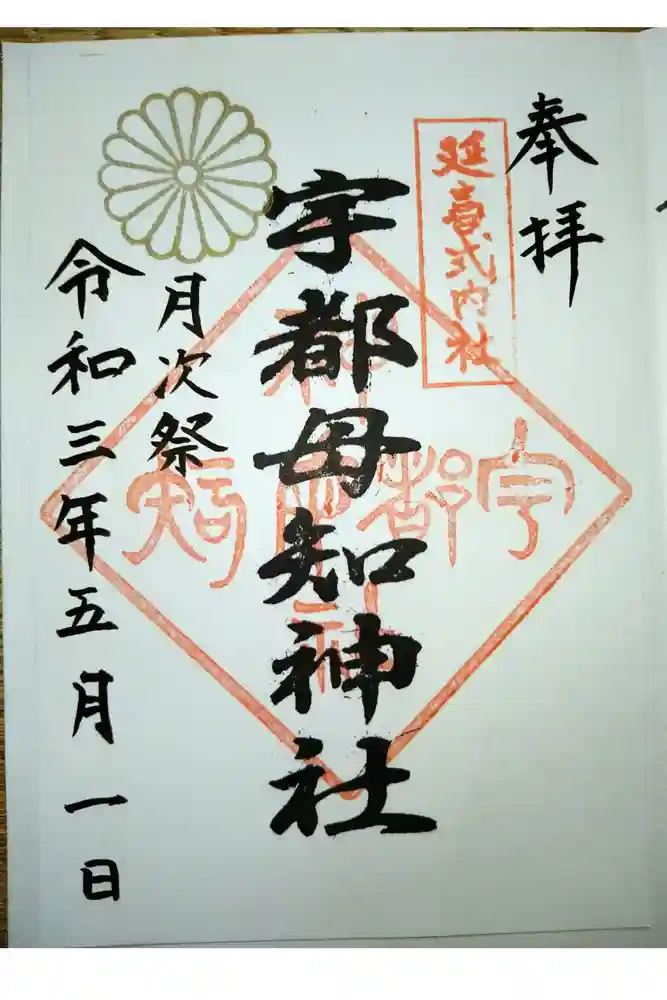 奉拝
延喜式内社
宇都母知神社
宇都母知
神社
月次祭
令和三年五月一日